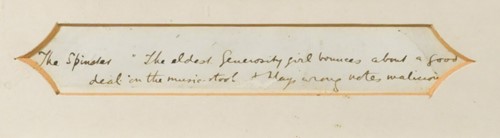 The Spinster "The eldest Generosity girl bounces about a good
deal on the music-stool & plays wrong notes